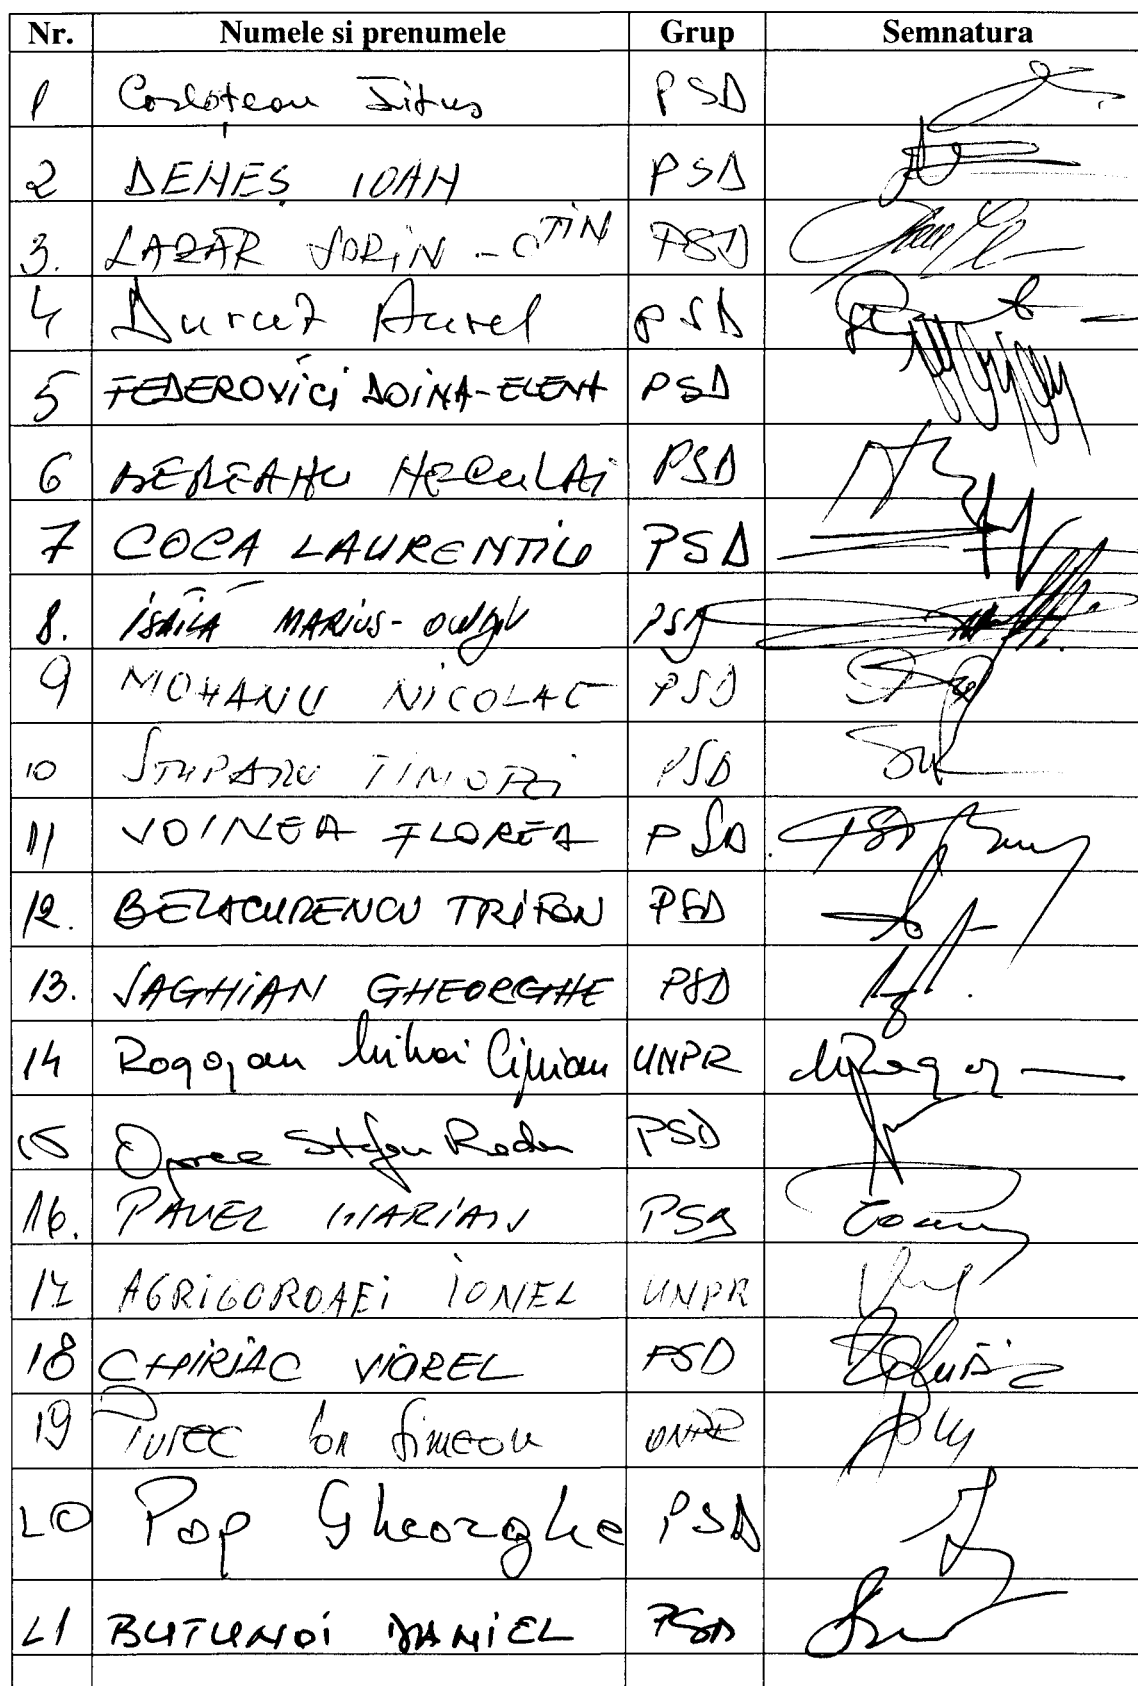 Nr. Numele si prenumele Grup Semnatura
1 Corlățean Titus PSD
2 DENEȘ IOAN PSD
3. LAZĂR SORIN - C-TIN PSD
4 Duruț Aurel PSD
5 FEDEROVICI DOINA-ELENA PSD
6 BEREANU NECULAI PSD
7 COCA LAURENTIU PSD
8. ISĂILĂ MARIUS- OVIDIU PSD
9 MOHANU NICOLAE PSD
10 STUPARU TIMOTEI PSD
11 VOINEA FLOREA PSD
12. BELACURENCU TRIFON PSD
13. SAGHIAN GHEORGHE PSD
14 Rogojan Mihai Ciprian UNPR
15 Oprea Stefan Radu PSD
16. PAVEL MARIAN PSD
17 AGRIGOROAEI IONEL UNPR
18 CHIRIAC VIOREL PSD
19 PUREC Ion Simeon UNPR
20 Pop Gheorghe PSD
21 BUTUNOI DANIEL PSD